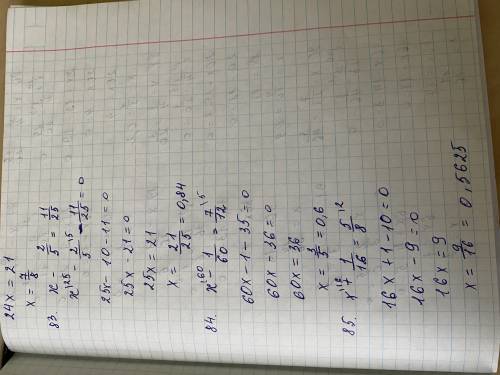 24x = 21
x = 7/8
83. x - 2/5 = 11/25
x^(25 - 2/5^(5 - 11/25 = 0
25x - 10 - 11 = 0
25x - 21 = 0
25x = 21
x = 21/25 = 0,84
84. x^(60 - 1/60 = 7/12^(5
60x - 1 - 35 = 0
60x - 36 = 0
60x = 36
x = 3/5 = 0,6
85. x^(16 + 1/16 = 5/8^(2
16x + 1 - 10 = 0
16x - 9 = 0
16x = 9
x = 9/16 = 0,5625